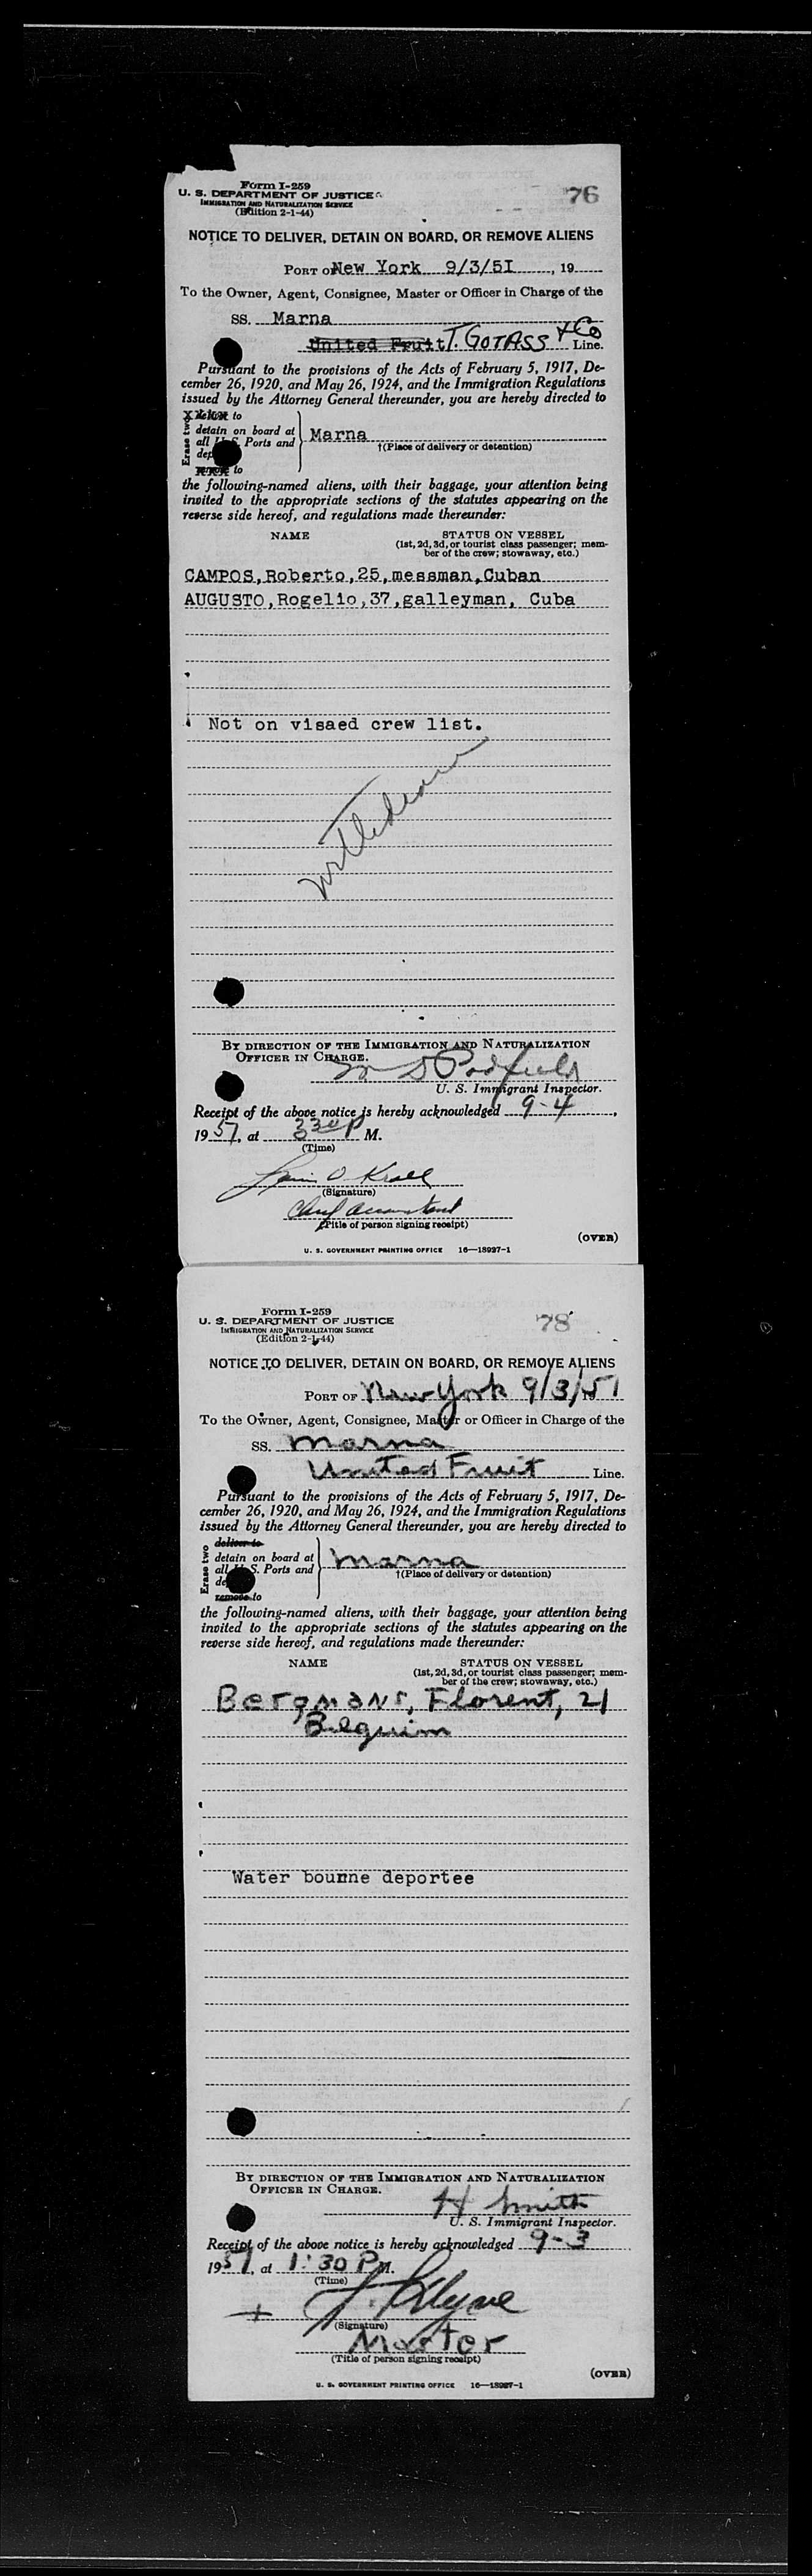 Form I-259
U. S. DEPARTMENT OF JUSTICE
IMMIGRATION AND NATURALIZATION SERVICE
(Edition 2-1-44)
76
NOTICE TO DELIVER, DETAIN ON BOARD, OR REMOVE ALIENS
PORT OF New York 9/3/51, 19
To the Owner, Agent, Consignee, Master or Officer in Charge of the
SS. Marna
United Fruit T. GOTASS & Co Line.
Pursuant to the provisions of the Acts of February 5, 1917, De-
cember 26, 1920, and May 26, 1924, and the Immigration Regulations
issued by the Attorney General thereunder, you are hereby directed to
Erase two
deliver to
detain on board at
all U.S. Ports and
Marna
†(Place of delivery or detention)
remove to
the following-named aliens, with their baggage, your attention being
invited to the appropriate sections of the statutes appearing on the
reverse side hereof, and regulations made thereunder:
NAME STATUS ON VESSEL
(1st, 2d, 3d, or tourist class passenger; mem-
ber of the crew; stowaway, etc.)
CAMPOS, Roberto, 25, messman, Cuban
AUGUSTO, Rogelio, 37, galleyman, Cuba
Not on visaed crew list.
BY DIRECTION OF THE IMMIGRATION AND NATURALIZATION
OFFICER IN CHARGE.
Padfield
U. S. Immigrant Inspector.
Receipt of the above notice is hereby acknowledged 9-4,
1951, at 330 P M.
(Time)
Krall
(Signature)
(Title of person signing receipt)
(OVER)
U. S. GOVERNMENT PRINTING OFFICE 16—18997-1
Form I-259
U. S. DEPARTMENT OF JUSTICE
IMMIGRATION AND NATURALIZATION SERVICE
(Edition 2-1-44)
78
NOTICE TO DELIVER, DETAIN ON BOARD, OR REMOVE ALIENS
PORT OF New York 9/3/51
To the Owner, Agent, Consignee, Master or Officer in Charge of the
SS. Marna
United Fruit Line.
Pursuant to the provisions of the Acts of February 5, 1917, De-
cember 26, 1920, and May 26, 1924, and the Immigration Regulations
issued by the Attorney General thereunder, you are hereby directed to
Erase two
deliver to
detain on board at
all U.S. Ports and
Marna
†(Place of delivery or detention)
remove to
the following-named aliens, with their baggage, your attention being
invited to the appropriate sections of the statutes appearing on the
reverse side hereof, and regulations made thereunder:
NAME STATUS ON VESSEL
(1st, 2d, 3d, or tourist class passenger; mem-
ber of the crew; stowaway, etc.)
Bergmans, Florent, 21
Belguim
Water bourne deportee
BY DIRECTION OF THE IMMIGRATION AND NATURALIZATION
OFFICER IN CHARGE.
H Smith
U. S. Immigrant Inspector.
Receipt of the above notice is hereby acknowledged 9-3
1951, at 1:30 P M.
(Time)
(Signature)
Master
(Title of person signing receipt)
(OVER)
U. S. GOVERNMENT PRINTING OFFICE 16—18997-1